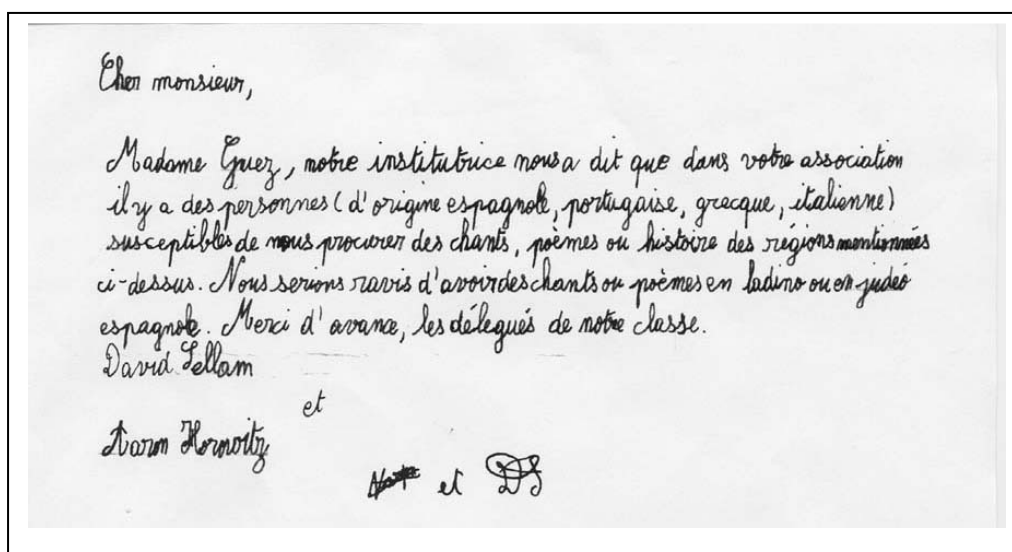 Cher monsieur,
Madame Guez, notre institutrice nous a dit que dans votre association
il y a des personnes (d'origine espagnole, portugaise, grecque, italienne)
susceptibles de nous procurer des chants, poèmes ou histoire des régions mentionnées
ci-dessus. Nous serions ravis d'avoir des chants ou poèmes en ladino ou en judéo
espagnole. Merci d'avance, les délegués de notre classe.
David Sellam
et
Aaron Horovitz
et DS